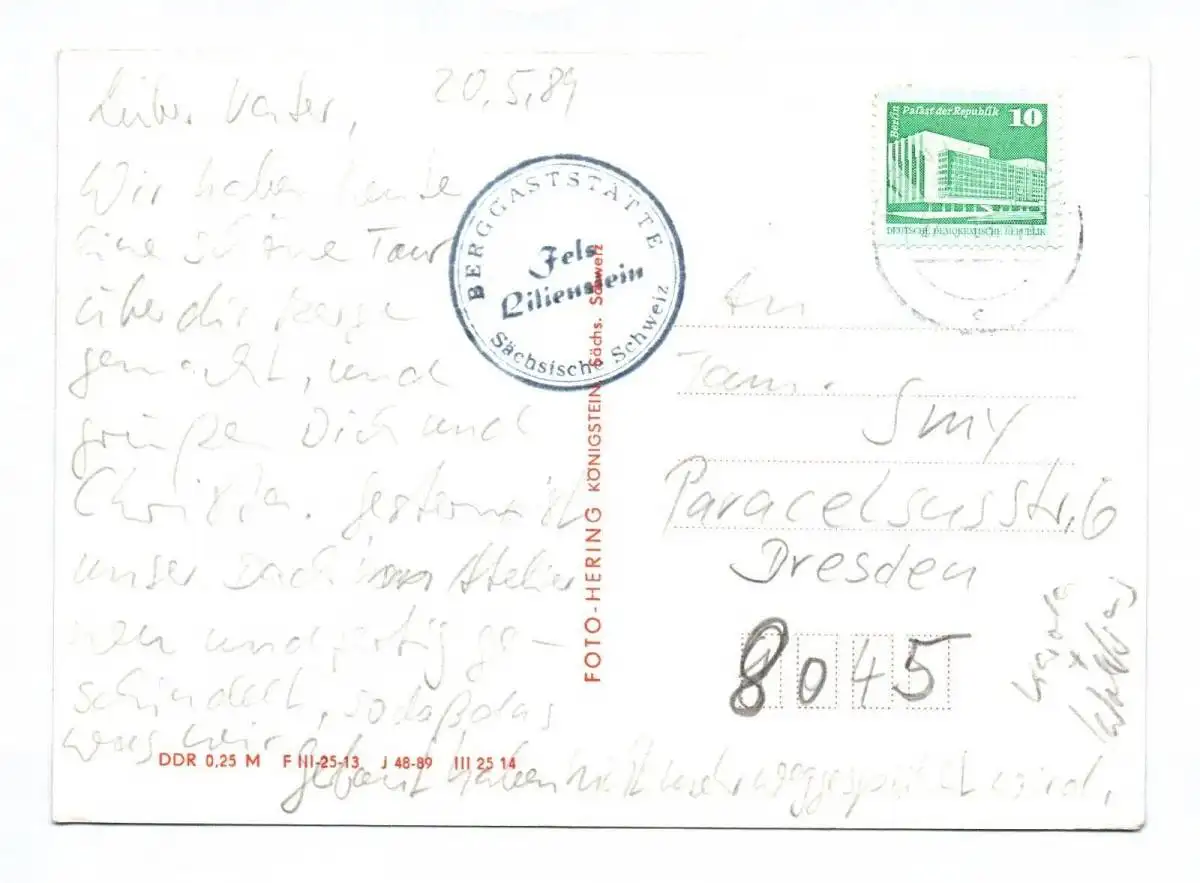 20.5.89
Lieber Vater,
Wir haben heute
eine schöne Tour
über die Berge
gemacht, und
grüßen Dich und
Christa. Gestern ist
unser Dach vom Atelier
neu und fertig ge-
schindelt, sodaß das
was wir
gebaut haben nicht mehr weggespült wird.
BERGGASTSTÄTTE
Fels
Lilienstein
Sächsische Schweiz
FOTO-HERING KÖNIGSTEIN, Sächs. Schweiz
Berlin Palast der Republik 10
DEUTSCHE DEMOKRATISCHE REPUBLIK
An
Fam.
Smy
Paracelsusstr. 6
Dresden
8045
DDR 0,25 M F III-25-13 J 48-89 III 25 14